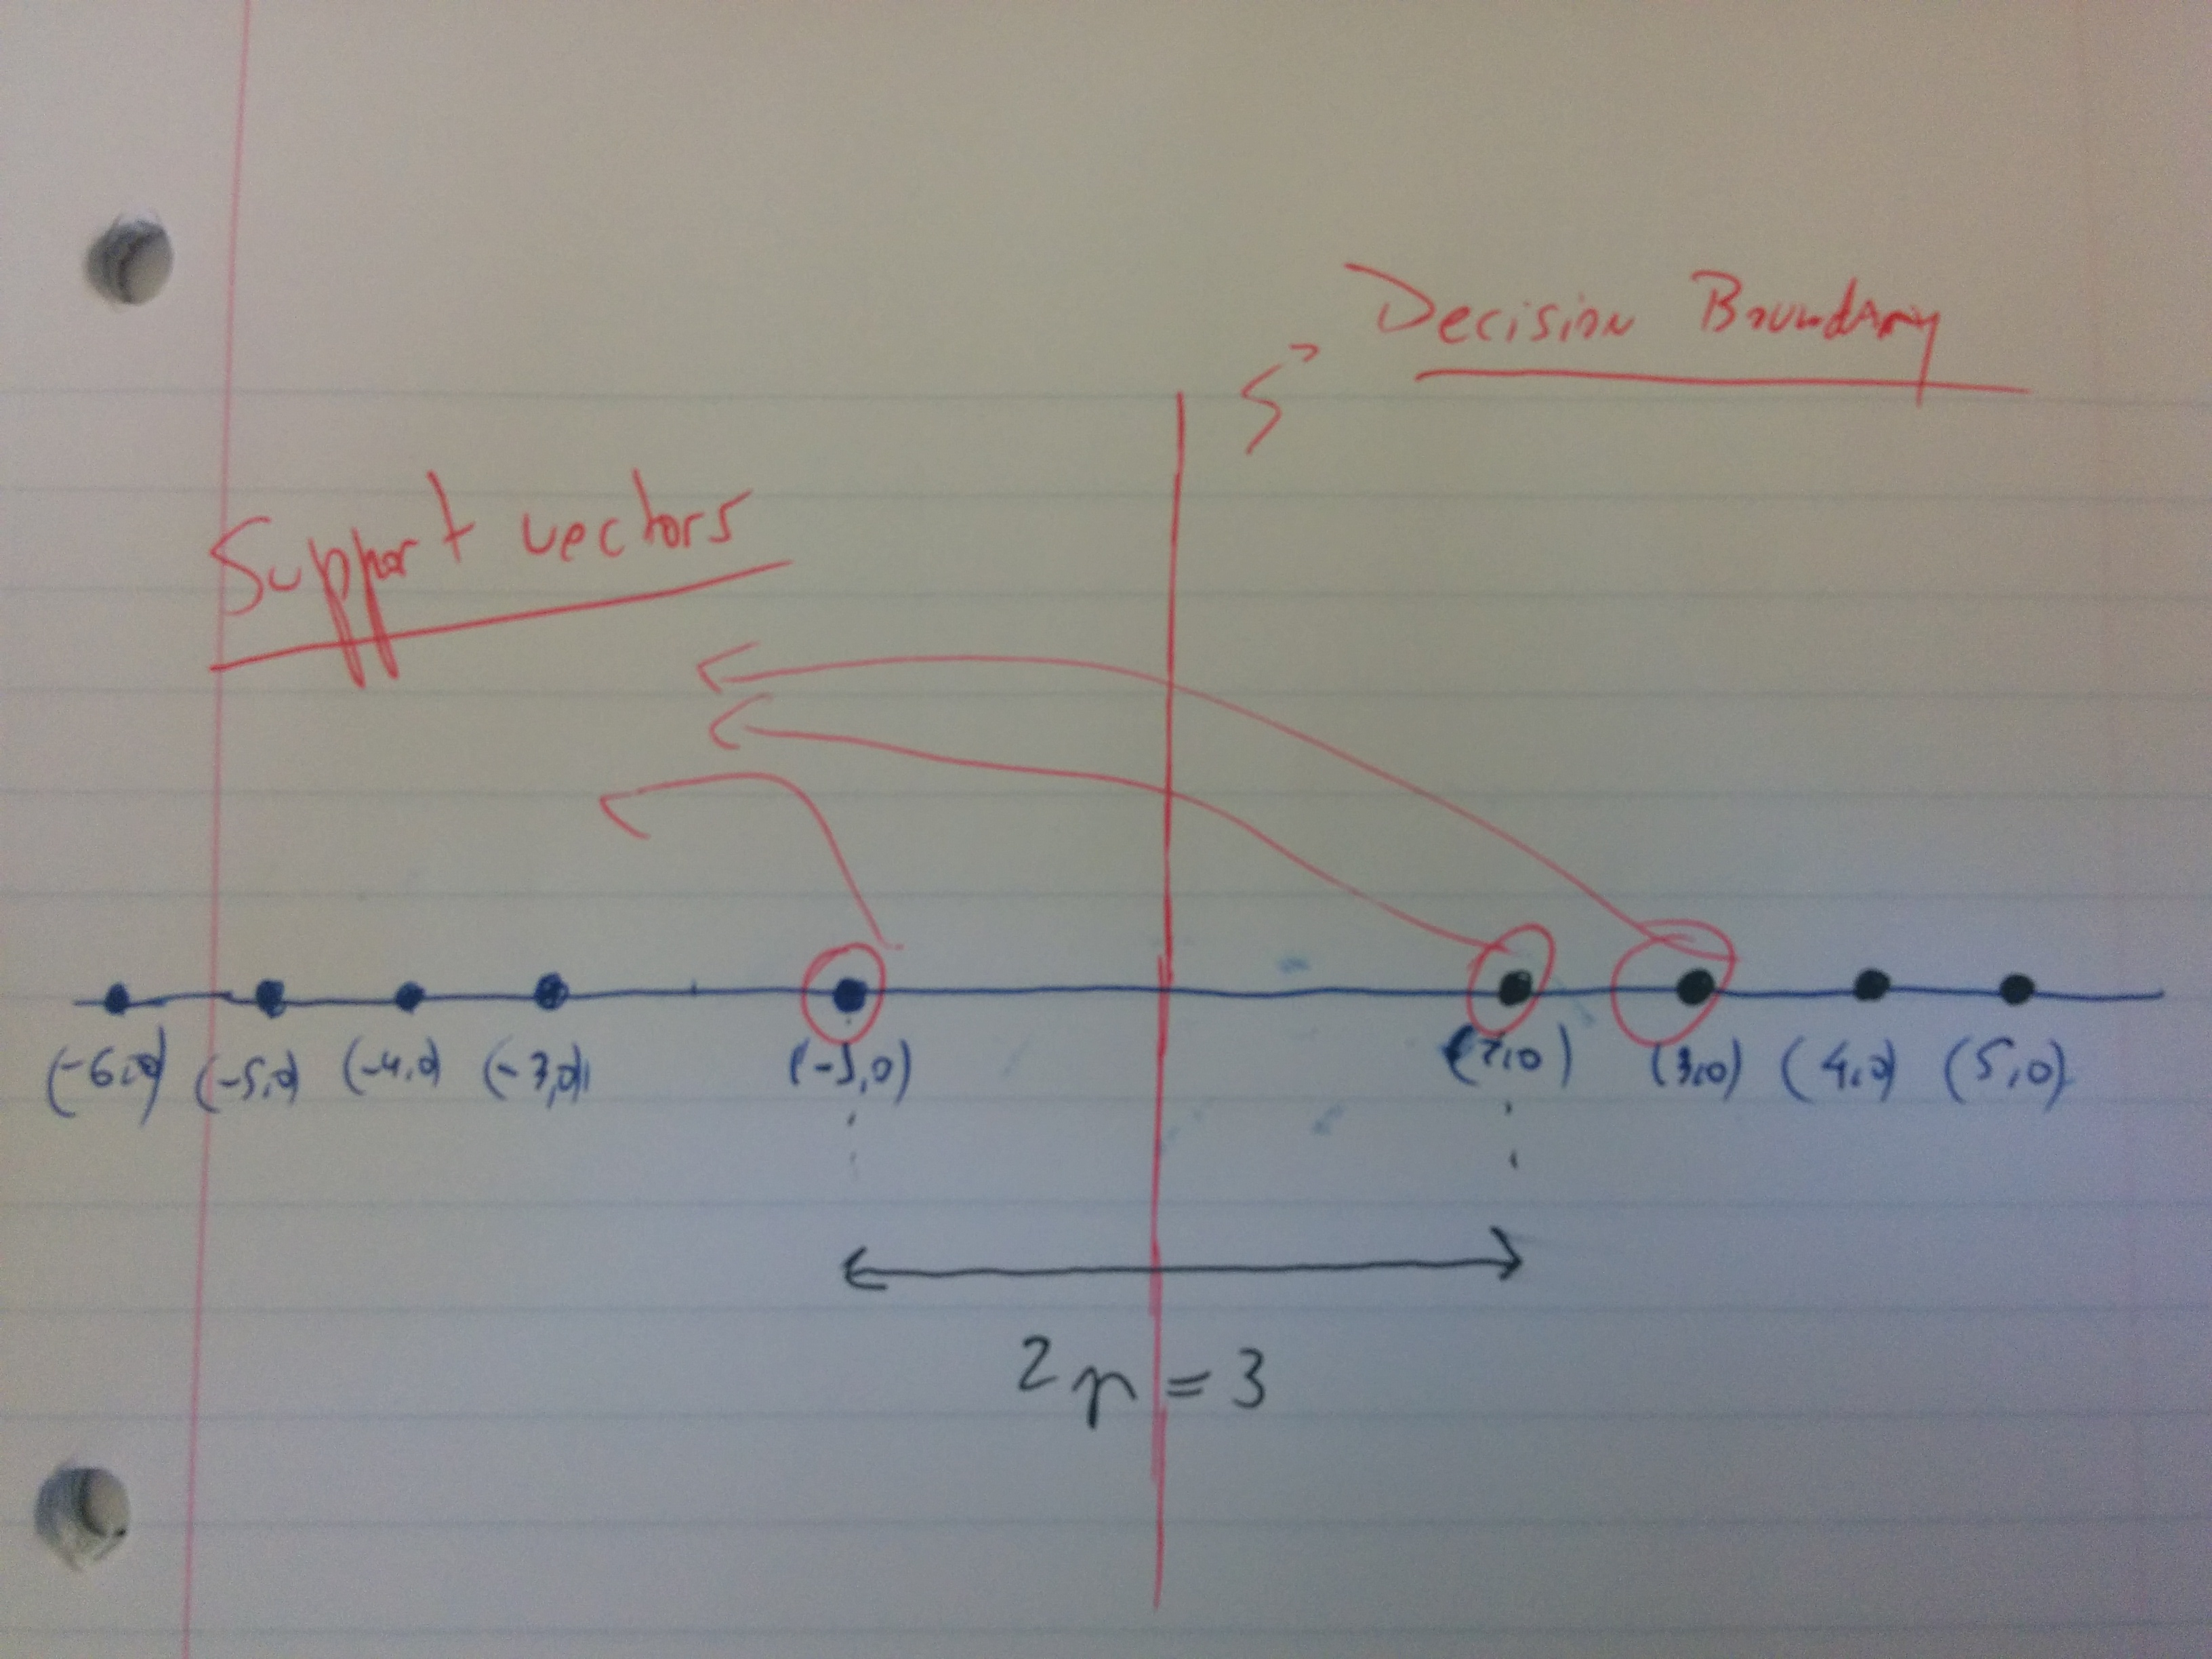 Decision Boundary
Support vectors
(-6,0) (-5,0) (-4,0) (-3,0) (3,0) (4,0) (5,0)
2r = 3